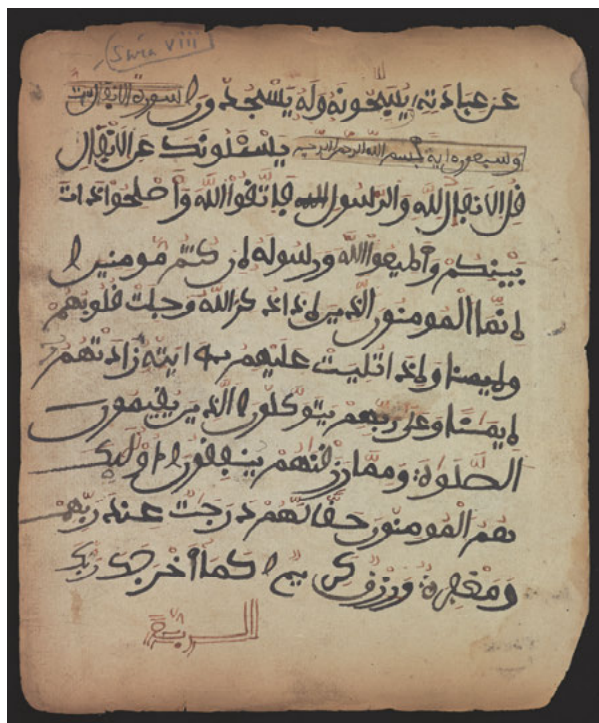 Sura VIII
عن عبادته ويسبحونه وله يسجدون سورة الانفال ست
وسبعون اية بسم الله الرحمن الرحيم يسئلونك عن الانفال
قل الانفال لله والرسول فاتقوا الله وأصلحوا ذات
بينكم وأطيعوا الله ورسوله إن كنتم مومنين
إنما المومنون الذين إذا ذكر الله وجلت قلوبهم
وإذا تليت عليهم ءايته زادتهم
إيمنا وعلى ربهم يتوكلون الذين يقيمون
الصلوة ومما رزقنهم ينفقون أولئك
هم المومنون حقا لهم درجت عند ربهم
ومغفرة ورزق كريم كما أخرجك ربك